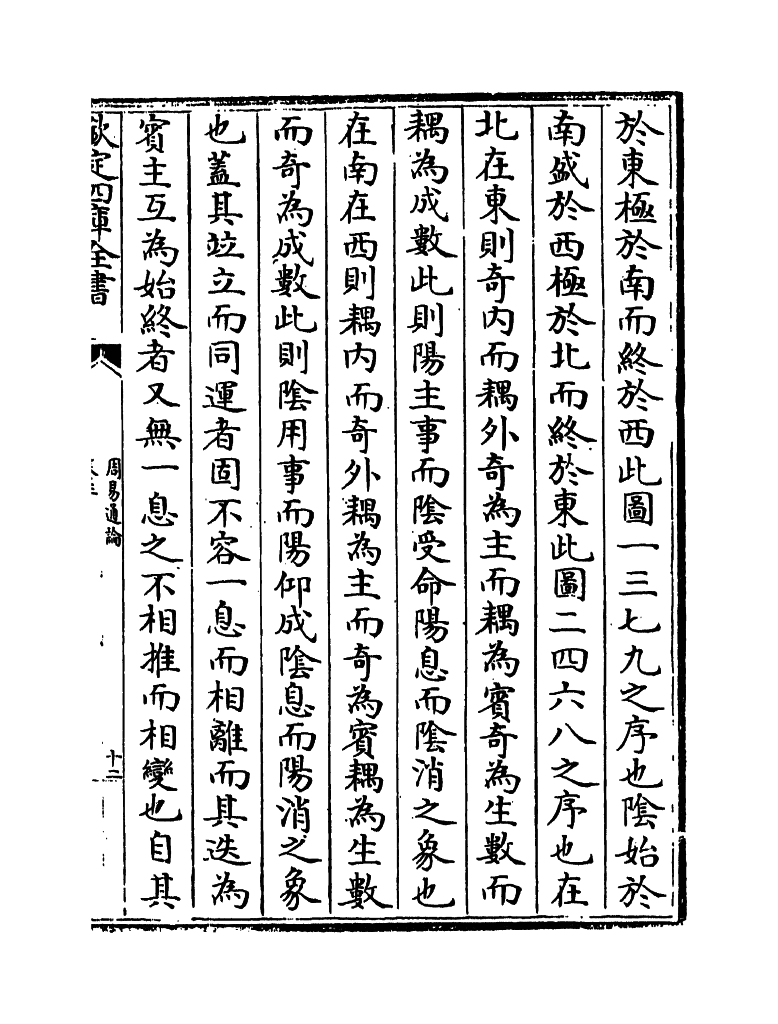 於東極於南而終於西此圖一三七九之序也陰始於
南盛於西極於北而終於東此圖二四六八之序也在
北在東則奇內而耦外奇為主而耦為賓奇為生數而
耦為成數此則陽主事而陰受命陽息而陰消之象也
在南在西則耦內而奇外耦為主而奇為賓耦為生數
而奇為成數此則陰用事而陽仰成陰息而陽消之象
也蓋其竝立而同運者固不容一息而相離而其迭為
賓主互為始終者又無一息之不相推而相變也自其
欽定四庫全書
周易通論
十二